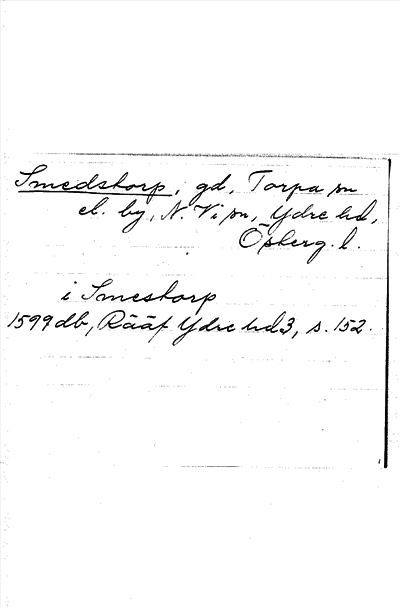 Smedstorp, gd, Torpa sn
el. by, N. Vi sn, Ydre hd,
Östergm. l.
i Smestorp
1599 db, Rääf Ydre hd 3, s. 152.